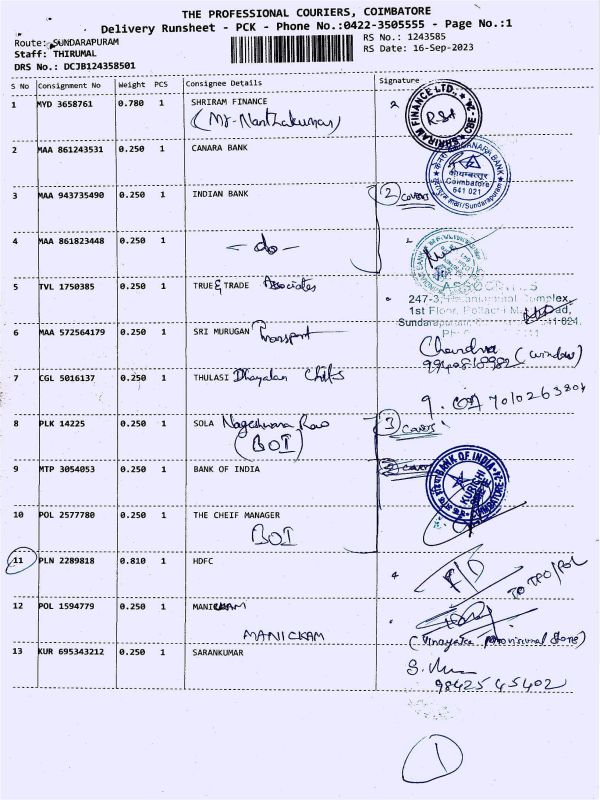 THE PROFESSIONAL COURIERS, COIMBATORE
Delivery Runsheet - PCK - Phone No.:0422-3505555 - Page No.:1
Route: SUNDARAPURAM
RS No.: 1243585
Staff: THIRUMAL
RS Date: 16-Sep-2023
DRS No.: DCJB124358501
S No Consignment No Weight PCS Consignee Details Signature
1 MYD 3658761 0.780 1 SHRIRAM FINANCE
(Mr. Nanthakumar)
SHRIRAM FINANCE LTD., CBE-24
2 MAA 861243531 0.250 1 CANARA BANK
CANARA BANK
कोयम्बत्तूर
Coimbatore
641 021
Sundarapuram
3 MAA 943735490 0.250 1 INDIAN BANK
2 covers
4 MAA 861823448 0.250 1
- do -
5 TVL 1750385 0.250 1 TRUE & TRADE Associates
ASSOCIATES
1st Floor, Pollachi Main Road,
6 MAA 572564179 0.250 1 SRI MURUGAN Transport
Chandra (window)
7 CGL 5016137 0.250 1 THULASI Dhayalan Chits
8 PLK 14225 0.250 1 SOLA Nageshwara Rao
(BOI)
3 covers
9 MTP 3054053 0.250 1 BANK OF INDIA
covers
BANK OF INDIA
KURICHI
COIMBATORE
10 POL 2577780 0.250 1 THE CHEIF MANAGER
BOI
11 PLN 2289818 0.810 1 HDFC
TO TPO/POL
12 POL 1594779 0.250 1 MANICKAM
MANICKAM
(Vinayaka provisional Store)
13 KUR 695343212 0.250 1 SARANKUMAR
98425 45402
1